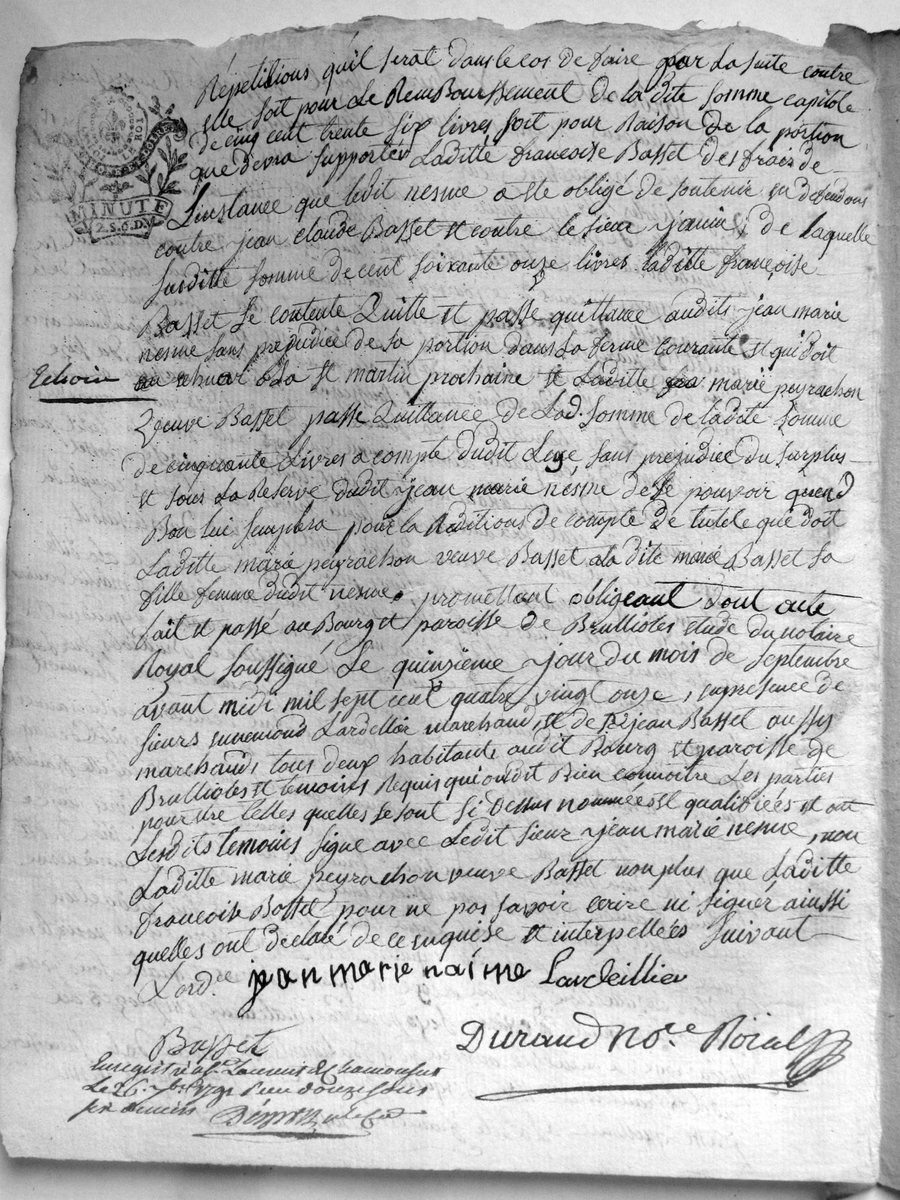 Répétitions qu'il serat dans le cas de faire par la suite contre
elle soit pour le RemBoursement de la dite somme capitole
de cinq cent trente six livres soit pour Raison de la portion
que devra supporter Laditte francoise Basset des frais de
L'instance que ledit nesme a ete obligé de soutenir en defendons
contre jean claude Basset et contre le sieur janin, de laquelle
susditte somme de cent soixante onze livres laditte françoise
Basset se contente Quitte et passe quittance audits jean marie
nesme sans prejudice de sa portion dans la ferme courante et qui doit
echoir
a la st martin prochaine et Laditte marie peyrachon
veuve Basset passe Quittance de Lad. somme de ladite somme
de cinquante Livres a compte dudit sans prejudice du surplus
et sous La Reserve dudit jean marie nesme de se pouvoir quend
Bon lui semblera pour la Redditions de compte de tutele que doit
Laditte marie peyrachon veuve Basset a la dite marie Basset sa
fille femme dudit nesme. promettant obligeant dont acte
fait et passé au Bourg et paroisse de Brullioles etude du notaire
Royal soussigné Le quinsieme jour du mois de septembre
avant midi mil sept cent quatre vingt onze, en presence de
sieurs ennemond Lardellier marchand, et de jean Basset aussy
marchand, tous deux habitants audit Bourg et paroisse de
Brullioles et temoins Requis qui ondit Bien connoitre Les parties
pour etre telles quelles se sont si dessus nommées et qualifiées et ont
Lesdits temoins signé avec Ledit sieur jean marie nesme, non
Laditte marie peyrachon veuve Basset non plus que Laditte
francoise Basset pour ne pas savoir ecrire ni signer ainssi
quelles ont declaré de ce enquise et interpellées suivant
L'ord.ce jean marie naime Lardeillier
Basset
Durand No.re Roial
Enregistré a St Laurent de Chamousset
Le 26. 7bre 1791
six deniers
MINUTE
2.S.6.D.